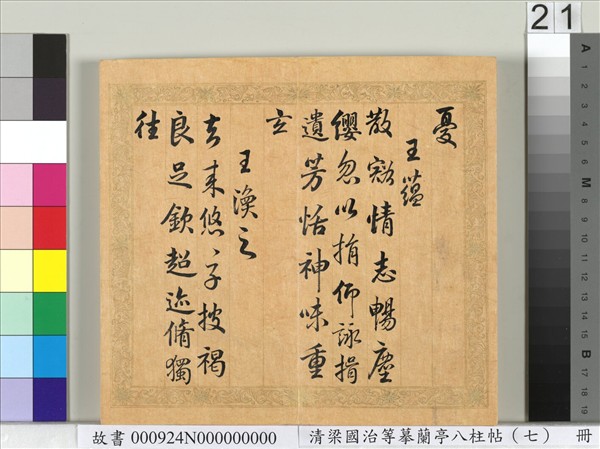 憂
王蘊
散豁情志暢塵
纓忽以捐仰詠揖
遺芳恬神味重
玄
王渙之
去來悠〻子披褐
良足欽超迹脩獨
往
21
A 1 2 3 4 5 6 M 8 9 10 11 12 13 14 15 B 17 18 19
故書 000924N000000000 清梁國治等摹蘭亭八柱帖(七) 冊